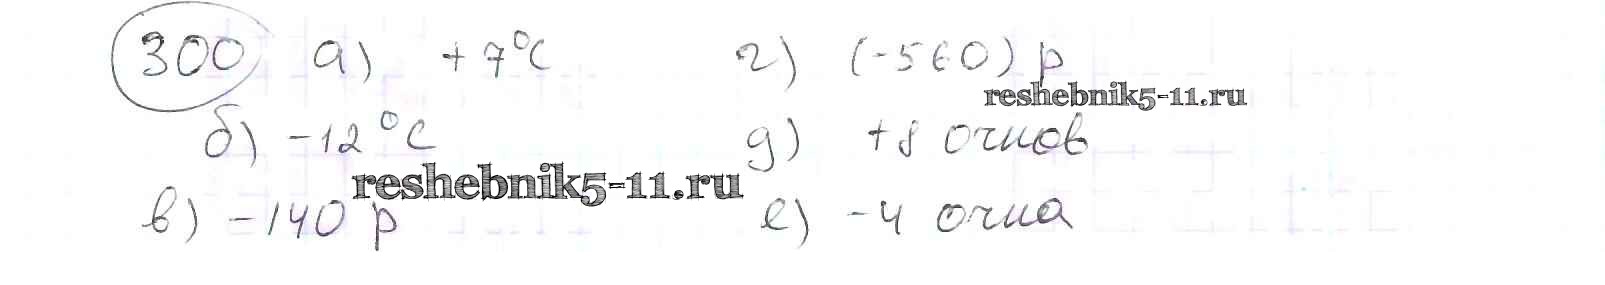 300 а) +7°С г) (-560) р
reshebnik5-11.ru
б) -12°С д) +8 очков
reshebnik5-11.ru
в) -140 р е) -4 очка